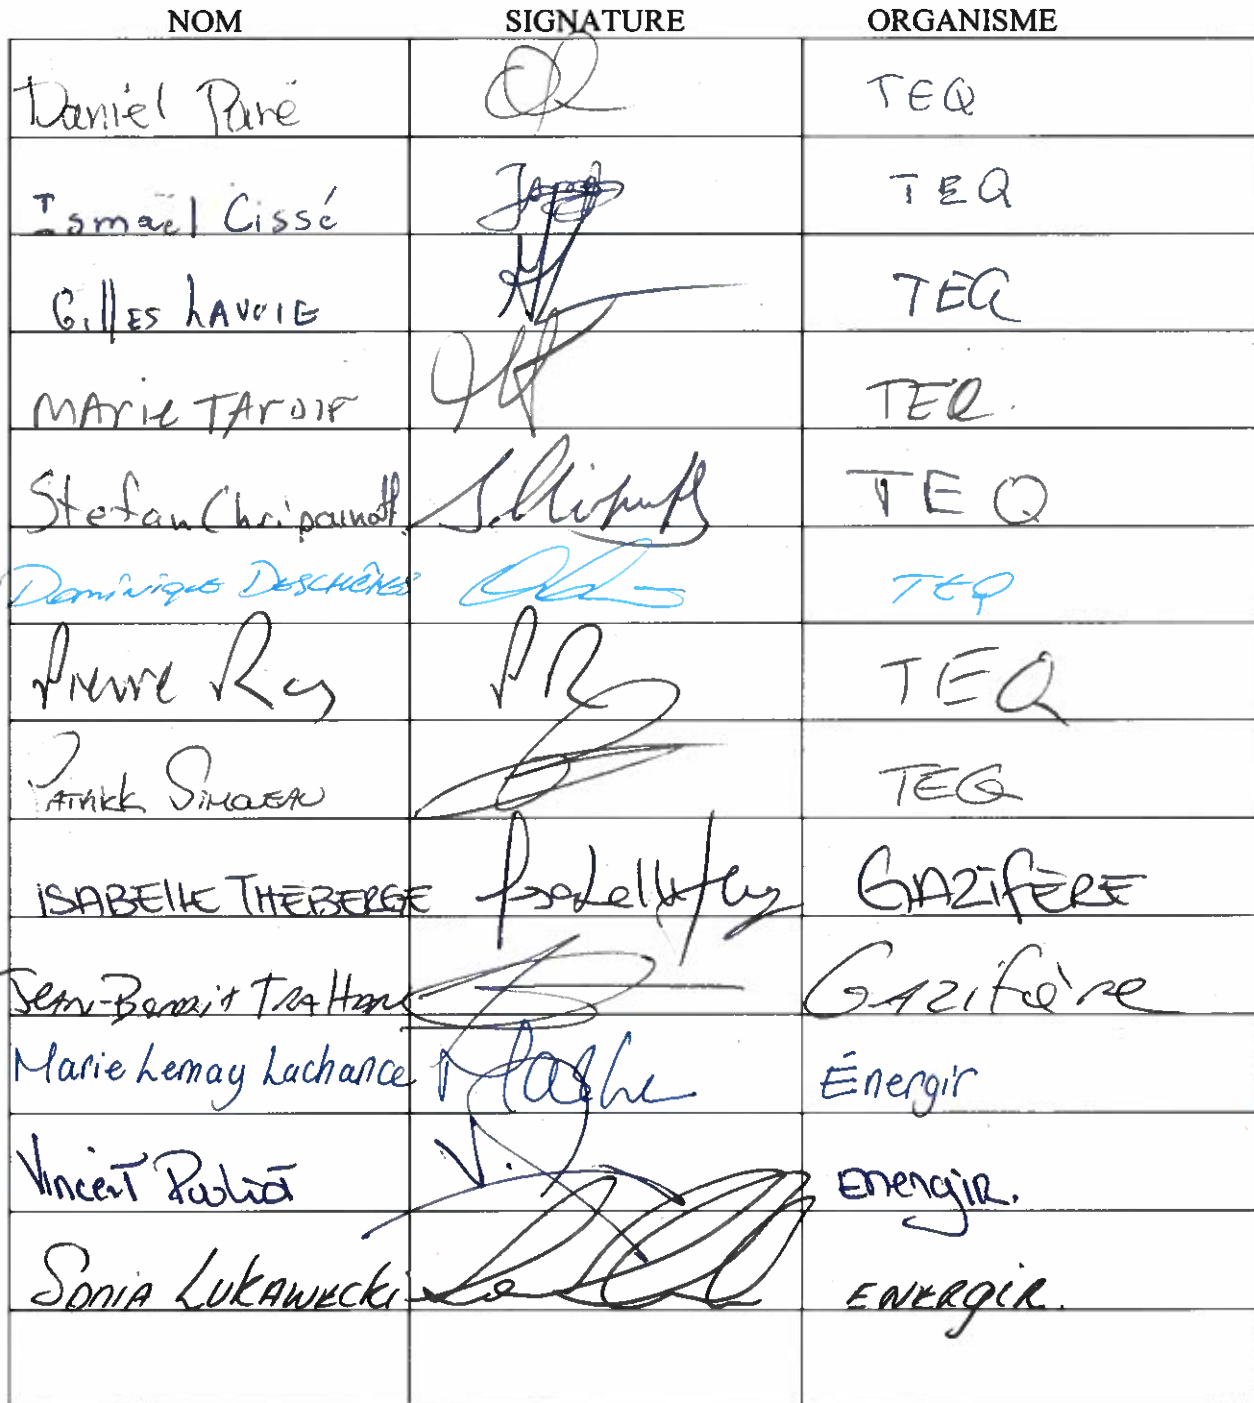 NOM SIGNATURE ORGANISME
Daniel Paré TEQ
Ismael Cissé TEQ
Gilles LAVOIE TEQ
MAriE TArDIF TEQ.
Stefan TEQ
Dominique DESCHÊNES TEQ
Pierre Roy PR TEQ
PATRICK SIMONEAU TEQ
ISABELLE THEBERGE GAZIFÈRE
Jean-Benoit TRAHAN GAZifère
Marie Lemay Lachance Énergir
VinceNT V. EnergiR.
SONIA LUKAWECKi ENERGIR.